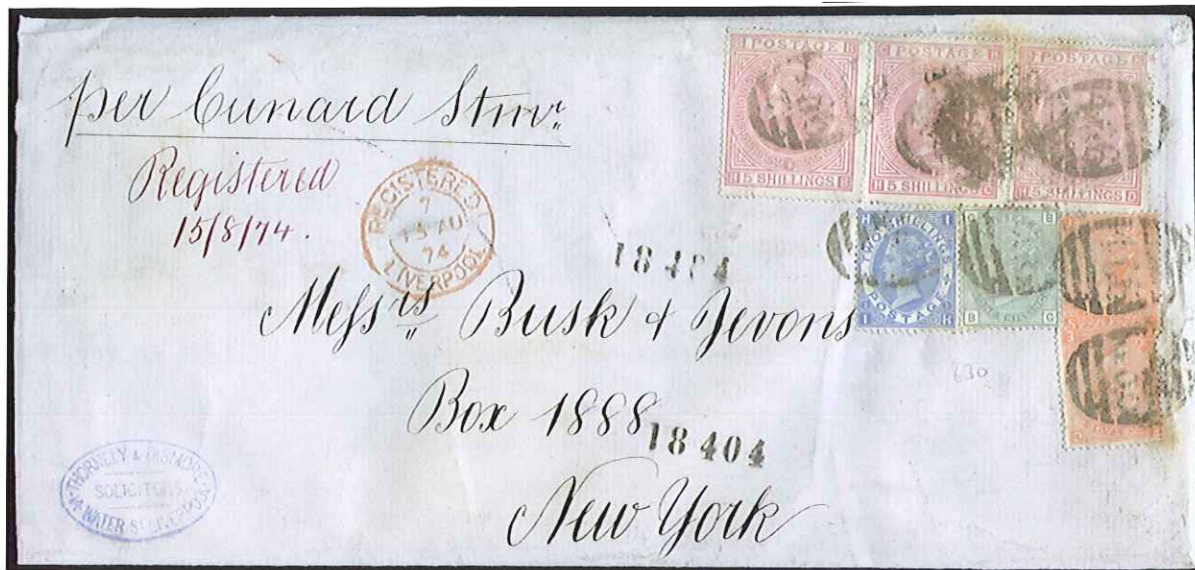 per Cunard Stmr.
Registered
15/8/74.
REGISTERED
7
15 AU
74
LIVERPOOL
H POSTAGE
H 5 SHILLINGS
POSTAGE
H 5 SHILLINGS G
POSTAGE
5 SHILLINGS D
H I
TWO SHILLINGS
POSTAGE
I H
G B
B G
18404
Messrs Busk & Jevons
Box 1888
830
18404
New York
THORNELY & DISMORE
SOLICITORS
WATER ST LIVERPOOL